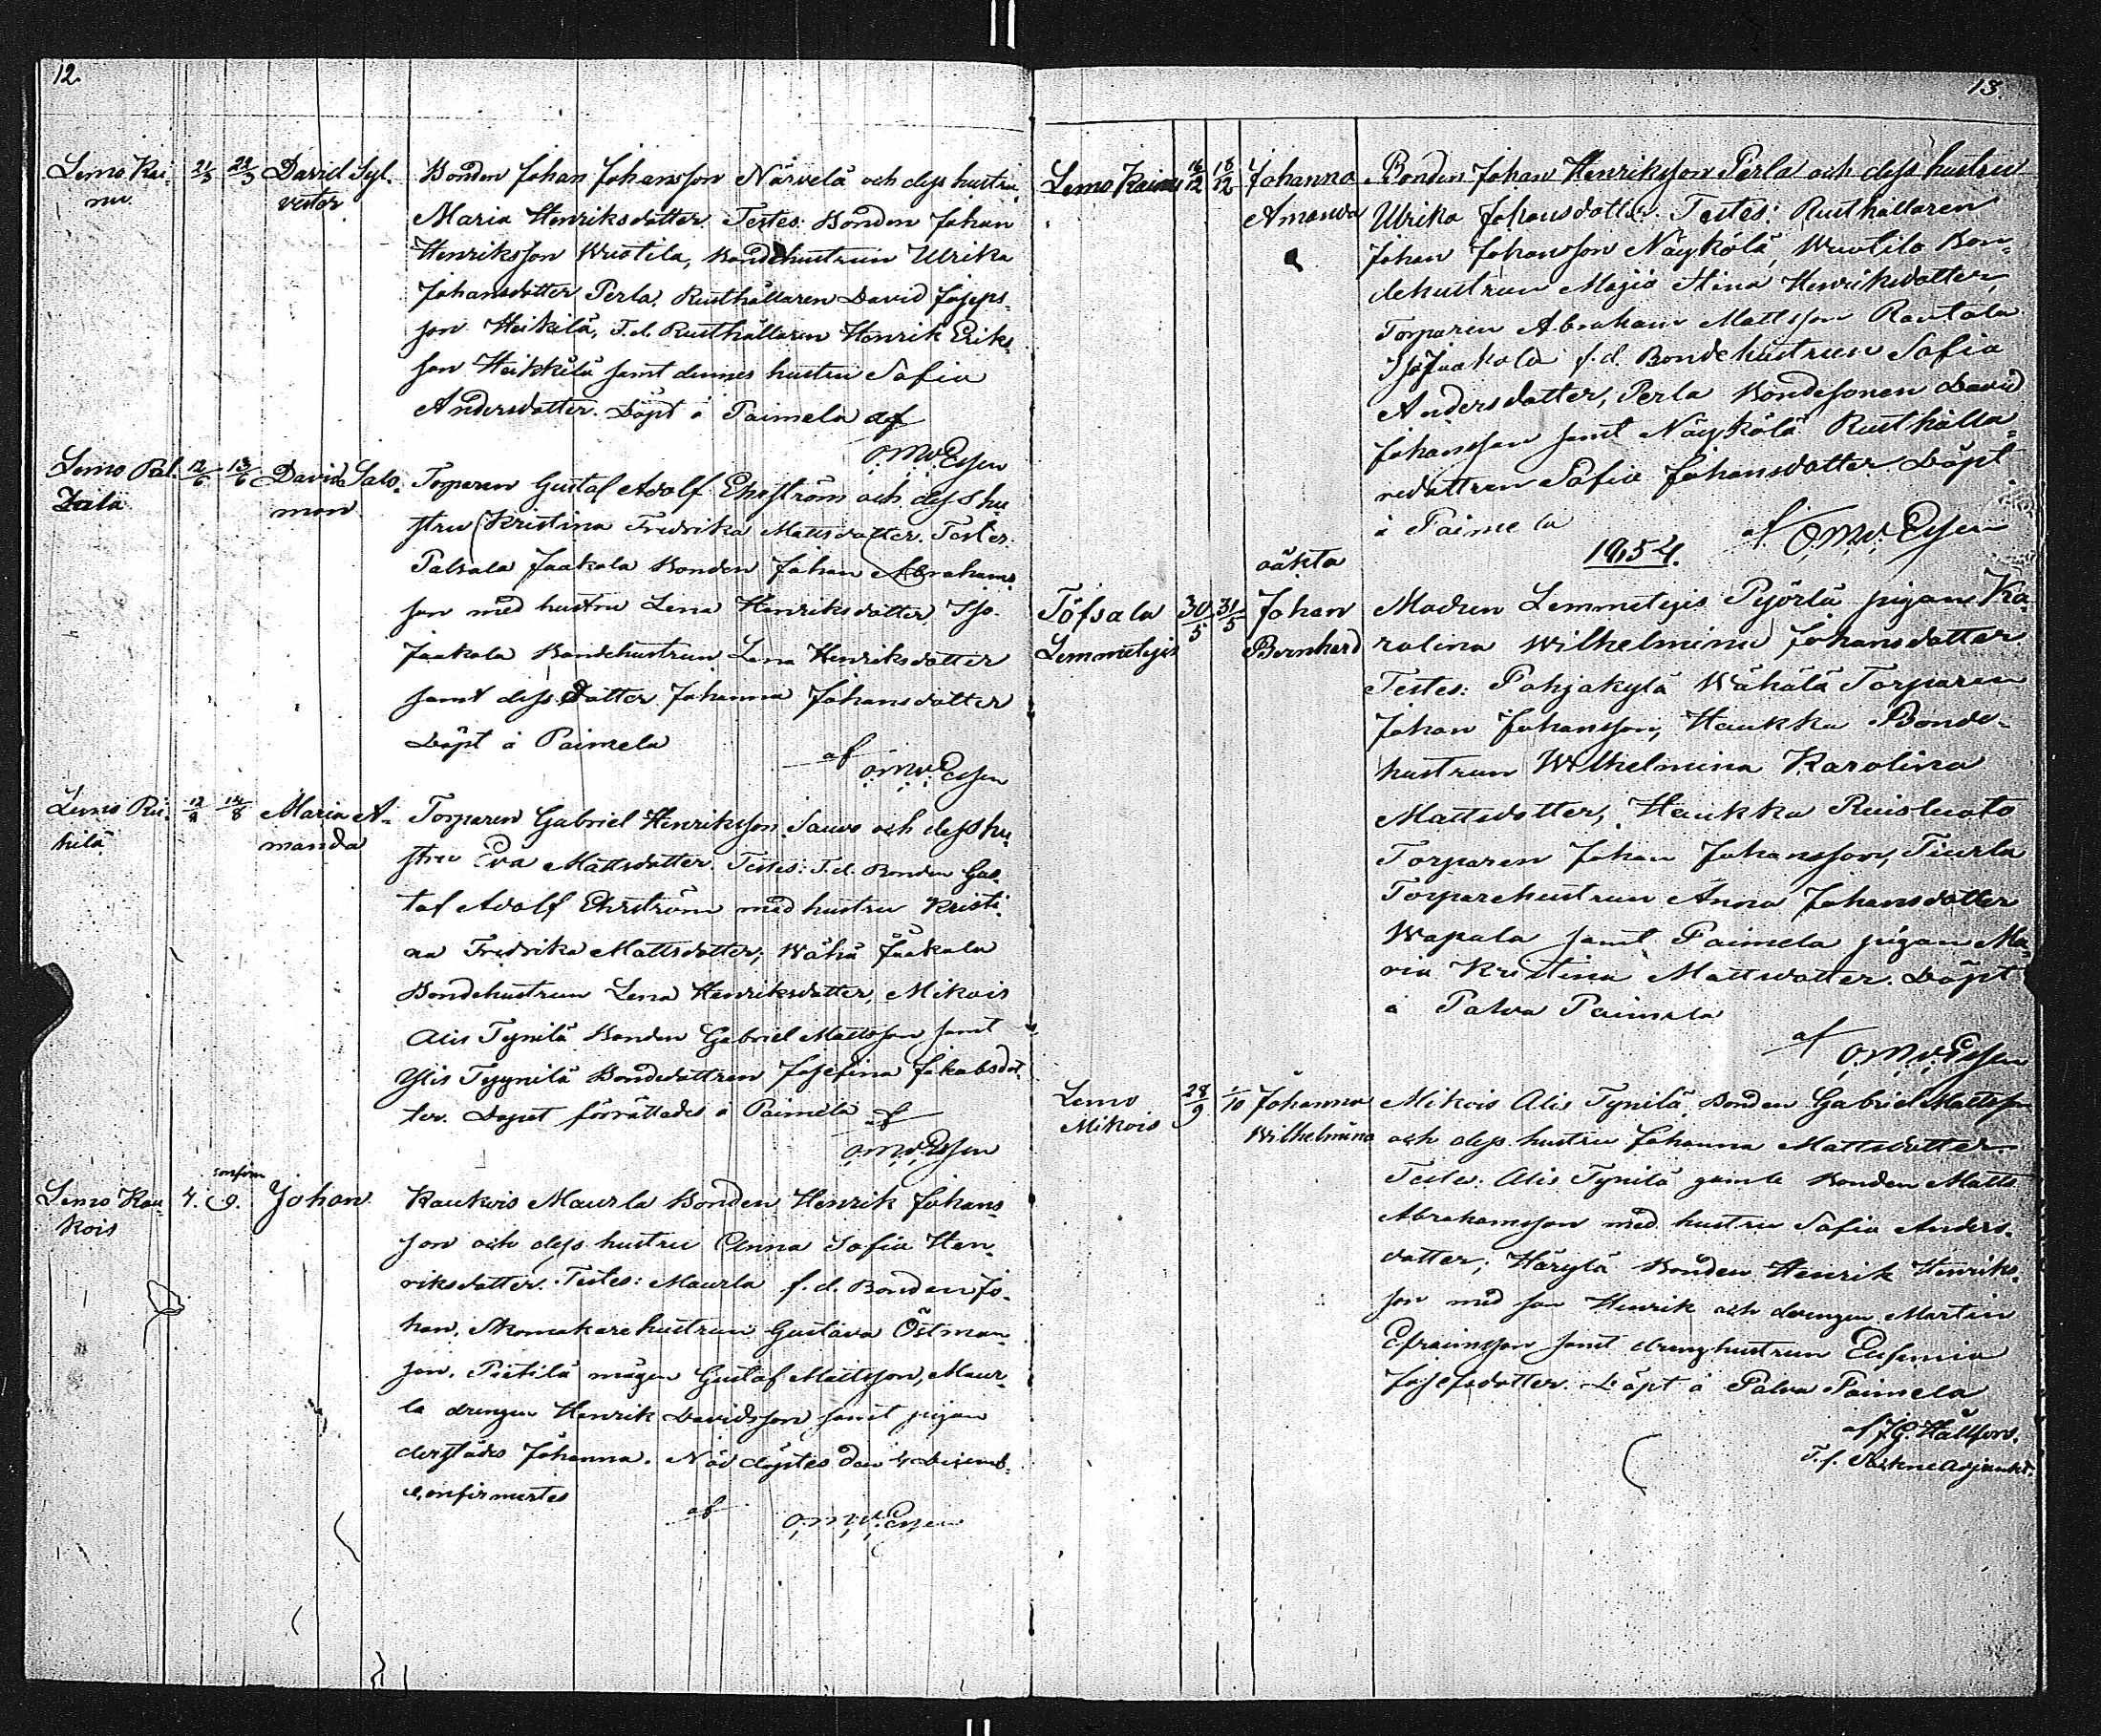 12.
Lemo Kai-
nu. 21/3 22/3 David Syl-
vester
Bonden Johan Johansson Närvelä och dess hustru
Maria Henriksdotter. Testes: Bonden Johan
Henriksson Wuotila, Bondehustrun Ulrika
Johansdotter Perla. Rusthållaren David Joseps-
son Heikilä, F.d. Rusthållaren Henrik Eriks-
son Heikkilä samt dennes hustru Sofia
Andersdotter. Döpt å Paimela af
O.M.v.Essen
Lemo Pal- 12/6 13/6 David Salo-
mon
Torparen Gustaf Adolf Ehrström och dess hu-
stru Kristina Fredrika Mattsdotter. Testes.
Palsala Jaakola Bonden Johan Abrahams-
son med hustru Lena Henriksdotter, Iso-
Jaakola Bondehustrun Lena Henriksdotter
samt dess Dotter Johanna Johansdotter
Döpt å Paimela
af O.M.v.Essen
Lemo Rii-
hilä 12/8 14/8 Maria A-
manda
Torparen Gabriel Henriksson Sauvo och dess hu-
stru Eva Mattsdotter. Testes: F.d. Bonden Gus-
taf Adolf Ehrström med hustru Kristi-
na Fredrika Mattsdotter; Wähä Jaakola
Bondehustrun Lena Henriksdotter, Mikois
Alis Tynilä Bonden Gabriel Mattsson samt
Ylis Tyynilä Bondedottren Josefina Jakobsdot-
ter. Dopet förrättades å Paimela af
O.M.v.Essen
confirm
Lemo Kau-
kois 4. 9. Johan
Kaukois Maurla Bonden Henrik Johans-
son och dess hustru Anna Sofia Hen-
riksdotter. Testes: Maurla f.d. Bonden Jo-
han, Skomakarehustrun Gustava Östman-
son, Pietilä mågen Gustaf Mattsson, Maur-
la drengen Henrik Davidsson samt pigan
derstädes Johanna. Nöd döptes den 4 Decemb.
Confirmertes
af O.M.v.Essen
13.
Lemo Kainu 16/12 18/12 Johanna
Amanda
Bonden Johan Henriksson Perla och dess hustru
Ulrika Johansdotter. Testes: Rusthållaren
Johan Johansson Näykölä, Wuotila Bon-
dehustrun Maja Stina Henriksdotter,
Torparen Abraham Mattsson Rantala
Isojaakola f.d. Bondehustrun Sofia
Andersdotter, Perla Bondesonen David
Johansson samt Näykölä Rusthålla-
redottren Sofia Johansdotter Döpt
å Paimela af O.M.v.Essen
1854.
Töfsala
Lemmetyis 30/5 31/5 oäkta
Johan
Bernhard
Modren Lemmetyis Pyörlä pigan Ka-
rolina Wilhelmina Johansdotter
Testes: Pohjakylä Wähälä Torparen
Johan Johansson, Haukka Bonde-
hustrun Wilhelmina Karolina
Mattsdotter, Haukka Ruisluoto
Torparen Johan Johansson, Tiurla
Torparehustrun Anna Johansdotter
Wapala samt Paimela pigan Ma-
ria Kristina Mattsdotter. Döpt
å Palva Paimela
af O.M.v.Essen
Lemo
Mikois 28/9 1/10 Johanna
Wilhelmina
Mikois Alis Tynilä Bonden Gabriel Mattsson
och dess hustru Johanna Mattsdotter.
Testes. Alis Tynilä gamle Bonden Matts
Abrahamsson med hustru Sofia Anders-
dotter; Härylä Bonden Henrik Henriks-
son med son Henrik och drengen Martin
Efraimsson samt drenghustrun Eufemia
Josefsdotter. Döpt å Palva Paimela
af J.G. Hällfors.
T.f. Sockneadjunkt.